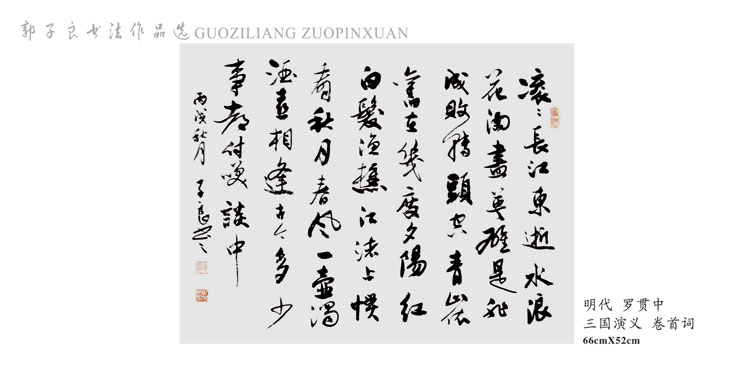 郭子良书法作品选 GUOZILIANG ZUOPINXUAN
滚〻長江東逝水浪
花淘盡英雄是非
成敗轉頭空青山依
舊在幾度夕陽紅
白髮渔樵江渚上慣
看秋月春风一壶濁
酒喜相逢古今多少
事都付笑談中
丙戌秋月 子良书
明代 罗贯中
三国演义 卷首词
66cmX52cm